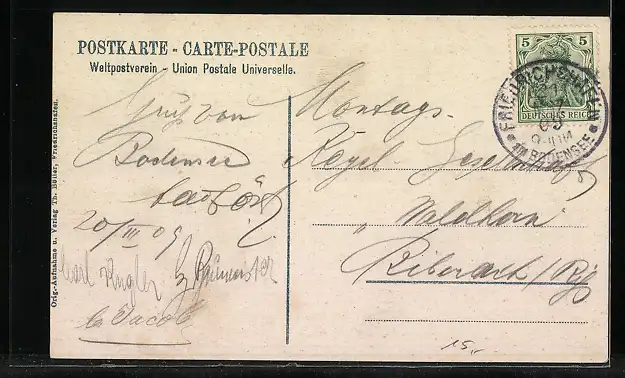 POSTKARTE - CARTE-POSTALE
Weltpostverein - Union Postale Universelle.
Orig.-Aufnahme u. Verlag Th. Müller, Friedrichshafen.
Gruss vom
Bodensee
20/III 09
Carl
Baumeister
Jacob
Montags-
Kegel-Gesellschaft
"Waldhorn"
Biberach/Riß
15,-
5 5
DEUTSCHES REICH
FRIEDRICHSHAFEN
09
IM BODENSEE